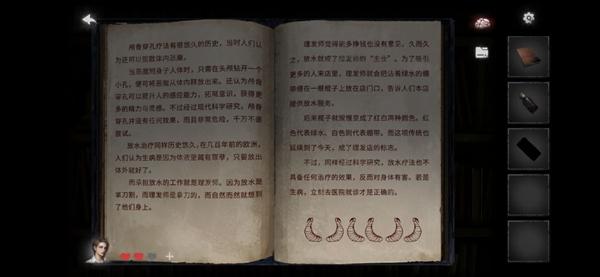 颅骨穿孔疗法有很悠久的历史，当时人们认
为还可以驱散体内恶魔。
当恶魔附身于人体时，只需在头颅钻开一个
小孔，便可将恶魔从体内释放出来。还认为颅骨
穿孔可以提升人的感应能力，拓展意识，获得更
多的精力与灵感。不过经过现代科学研究，颅骨
穿孔并没有任何效果，而且非常危险，千万不要
尝试。
放水治疗同样历史悠久，在几百年前的欧洲，
人们认为生病是因为体液里藏有罪孽，只要放出
体外就好了。
而承担放水的工作就是理发师。因为放水需
拿刀割，而理发师是拿刀的，而自然而然就想到
了他们身上。
理发师觉得能多挣钱也没有意见。久而久
之，放水就成了理发师的“主业”。为了吸引
更多的人来店里，理发师就会把沾着绿水的绷
带缠在一根棍子上放在店门口，告诉人们本店
提供放水服务。
后来棍子就慢慢变成了红白两种颜色。红
色代表绿水，白色则代表绷带。而这项传统也
延续到了今天，成了理发店的标志。
不过，同样经过科学研究，放水疗法也不
具备任何治疗的效果，反而对身体有害。若是
生病，立刻去医院就诊才是正确的。